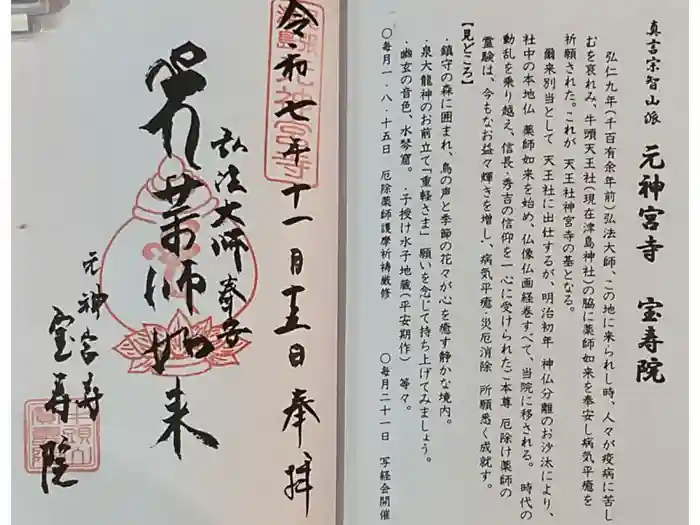 真言宗智山派　元神宮寺　宝寿院
弘仁九年(千百有余年前)弘法大師、この地に来られし時、人々が疫病に苦し
むを哀れみ、牛頭天王社(現在津島神社)の脇に薬師如来を奉安し病気平癒を
祈願された。これが 天王社神宮寺の基となる。
爾来別当として 天王社に出仕するが、明治初年 神仏分離のお沙汰により、
社中の本地仏 薬師如来を始め、仏像仏画経巻すべて、当院に移される。時代の
動乱を乗り越え、信長・秀吉の信仰を一心に受けられたご本尊 厄除け薬師の
霊験は、今もなお益々輝きを増し、病気平癒・災厄消除 所願悉く成就す。
【見どころ】
・鎮守の森に囲まれ、鳥の声と季節の花々が心を癒す静かな境内。
・泉大龍神のお前立て「重軽さま」 願いを念じて持ち上げてみましょう。
・幽玄の音色、水琴窟。 ・子授け水子地蔵(平安期作) 等々。
〇毎月一・八・十五日　厄除薬師護摩祈祷厳修　〇毎月二十一日　写経会開催
令和七年十一月十五日 奉拝
元神宮寺
弘法大師奉安
薬師如来
元神宮寺
宝寿院